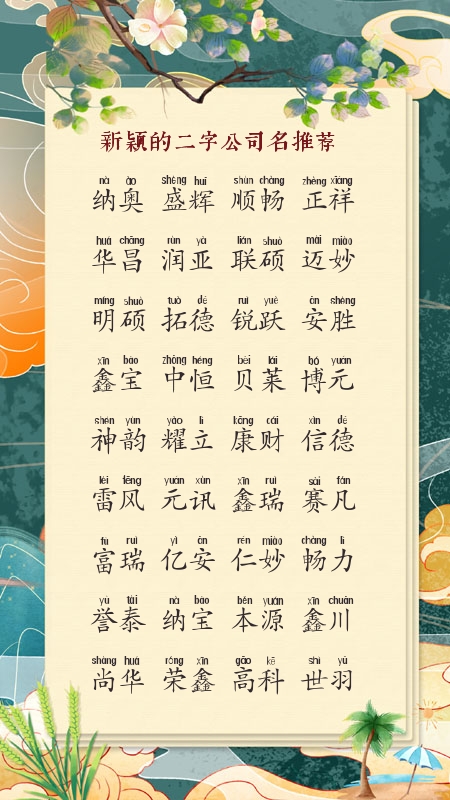 新颖的二字公司名推荐
nà ào shèng huī shùn chàng zhèng xiáng
纳奥 盛辉 顺畅 正祥
huá chāng rùn yà lián shuò mài miào
华昌 润亚 联硕 迈妙
míng shuò tuò dé ruì yuè ān shèng
明硕 拓德 锐跃 安胜
xīn bǎo zhōng héng bèi lái bó yuán
鑫宝 中恒 贝莱 博元
shén yùn yào lì kāng cái xìn dé
神韵 耀立 康财 信德
léi fēng yuán xùn xīn ruì sài fán
雷风 元讯 鑫瑞 赛凡
fù ruì yì ān rén miào chàng lì
富瑞 亿安 仁妙 畅力
yù tài nà bǎo běn yuán xīn chuān
誉泰 纳宝 本源 鑫川
shàng huá róng xīn gāo kē shì yǔ
尚华 荣鑫 高科 世羽